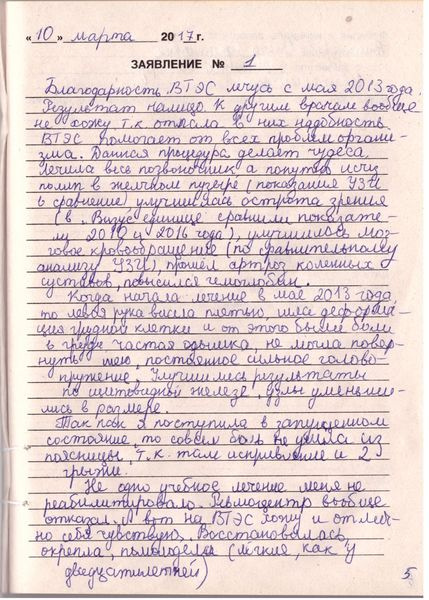 « 10 » марта 2017 г.
ЗАЯВЛЕНИЕ № 1
Благодарность ВТЭС лечусь с мая 2013 года.
Результат налицо к другим врачам вообще
не хожу т.к. отпала в них надобность
ВТЭС помогает от всех проблем организ-
ма. Данная процедура делает чудеса,
лечила весь позвоночник а попутно исчез
полип в желчном пузыре (показания УЗИ
в сравнение) улучшилась острота зрения
(в Визус единице сравнили показате-
ли 2010 и 2016 года), улучшилось моз-
говое кровообращение (по сравнительному
анализу УЗИ), прошёл артроз коленных
суставов, повысился гемоглобин.
Когда начала лечение в мае 2013 года
то левая рука висла плетью, шла деформа-
ция грудной клетки и от этого были боли
в груде частая одышка, не могла повер-
нуть шею, постоянное сильное голово-
пружение. Улучшились результаты
по щитовидной железе, узлы уменьши-
лись в размере.
Так как я поступила в запущенном
состояние, то совсем боль не ушла из
поясницы, т.к. там искривление и 2
грыжи.
Не одно учебное лечение меня не
реабилитировало. Рениоцентр вообще
отказал. А вот на ВТЭС хожу и отлич-
но себя чувствую. Восстановилась,
окрепла, помолодела (лёгкие, как у
двадцатилетней)
5